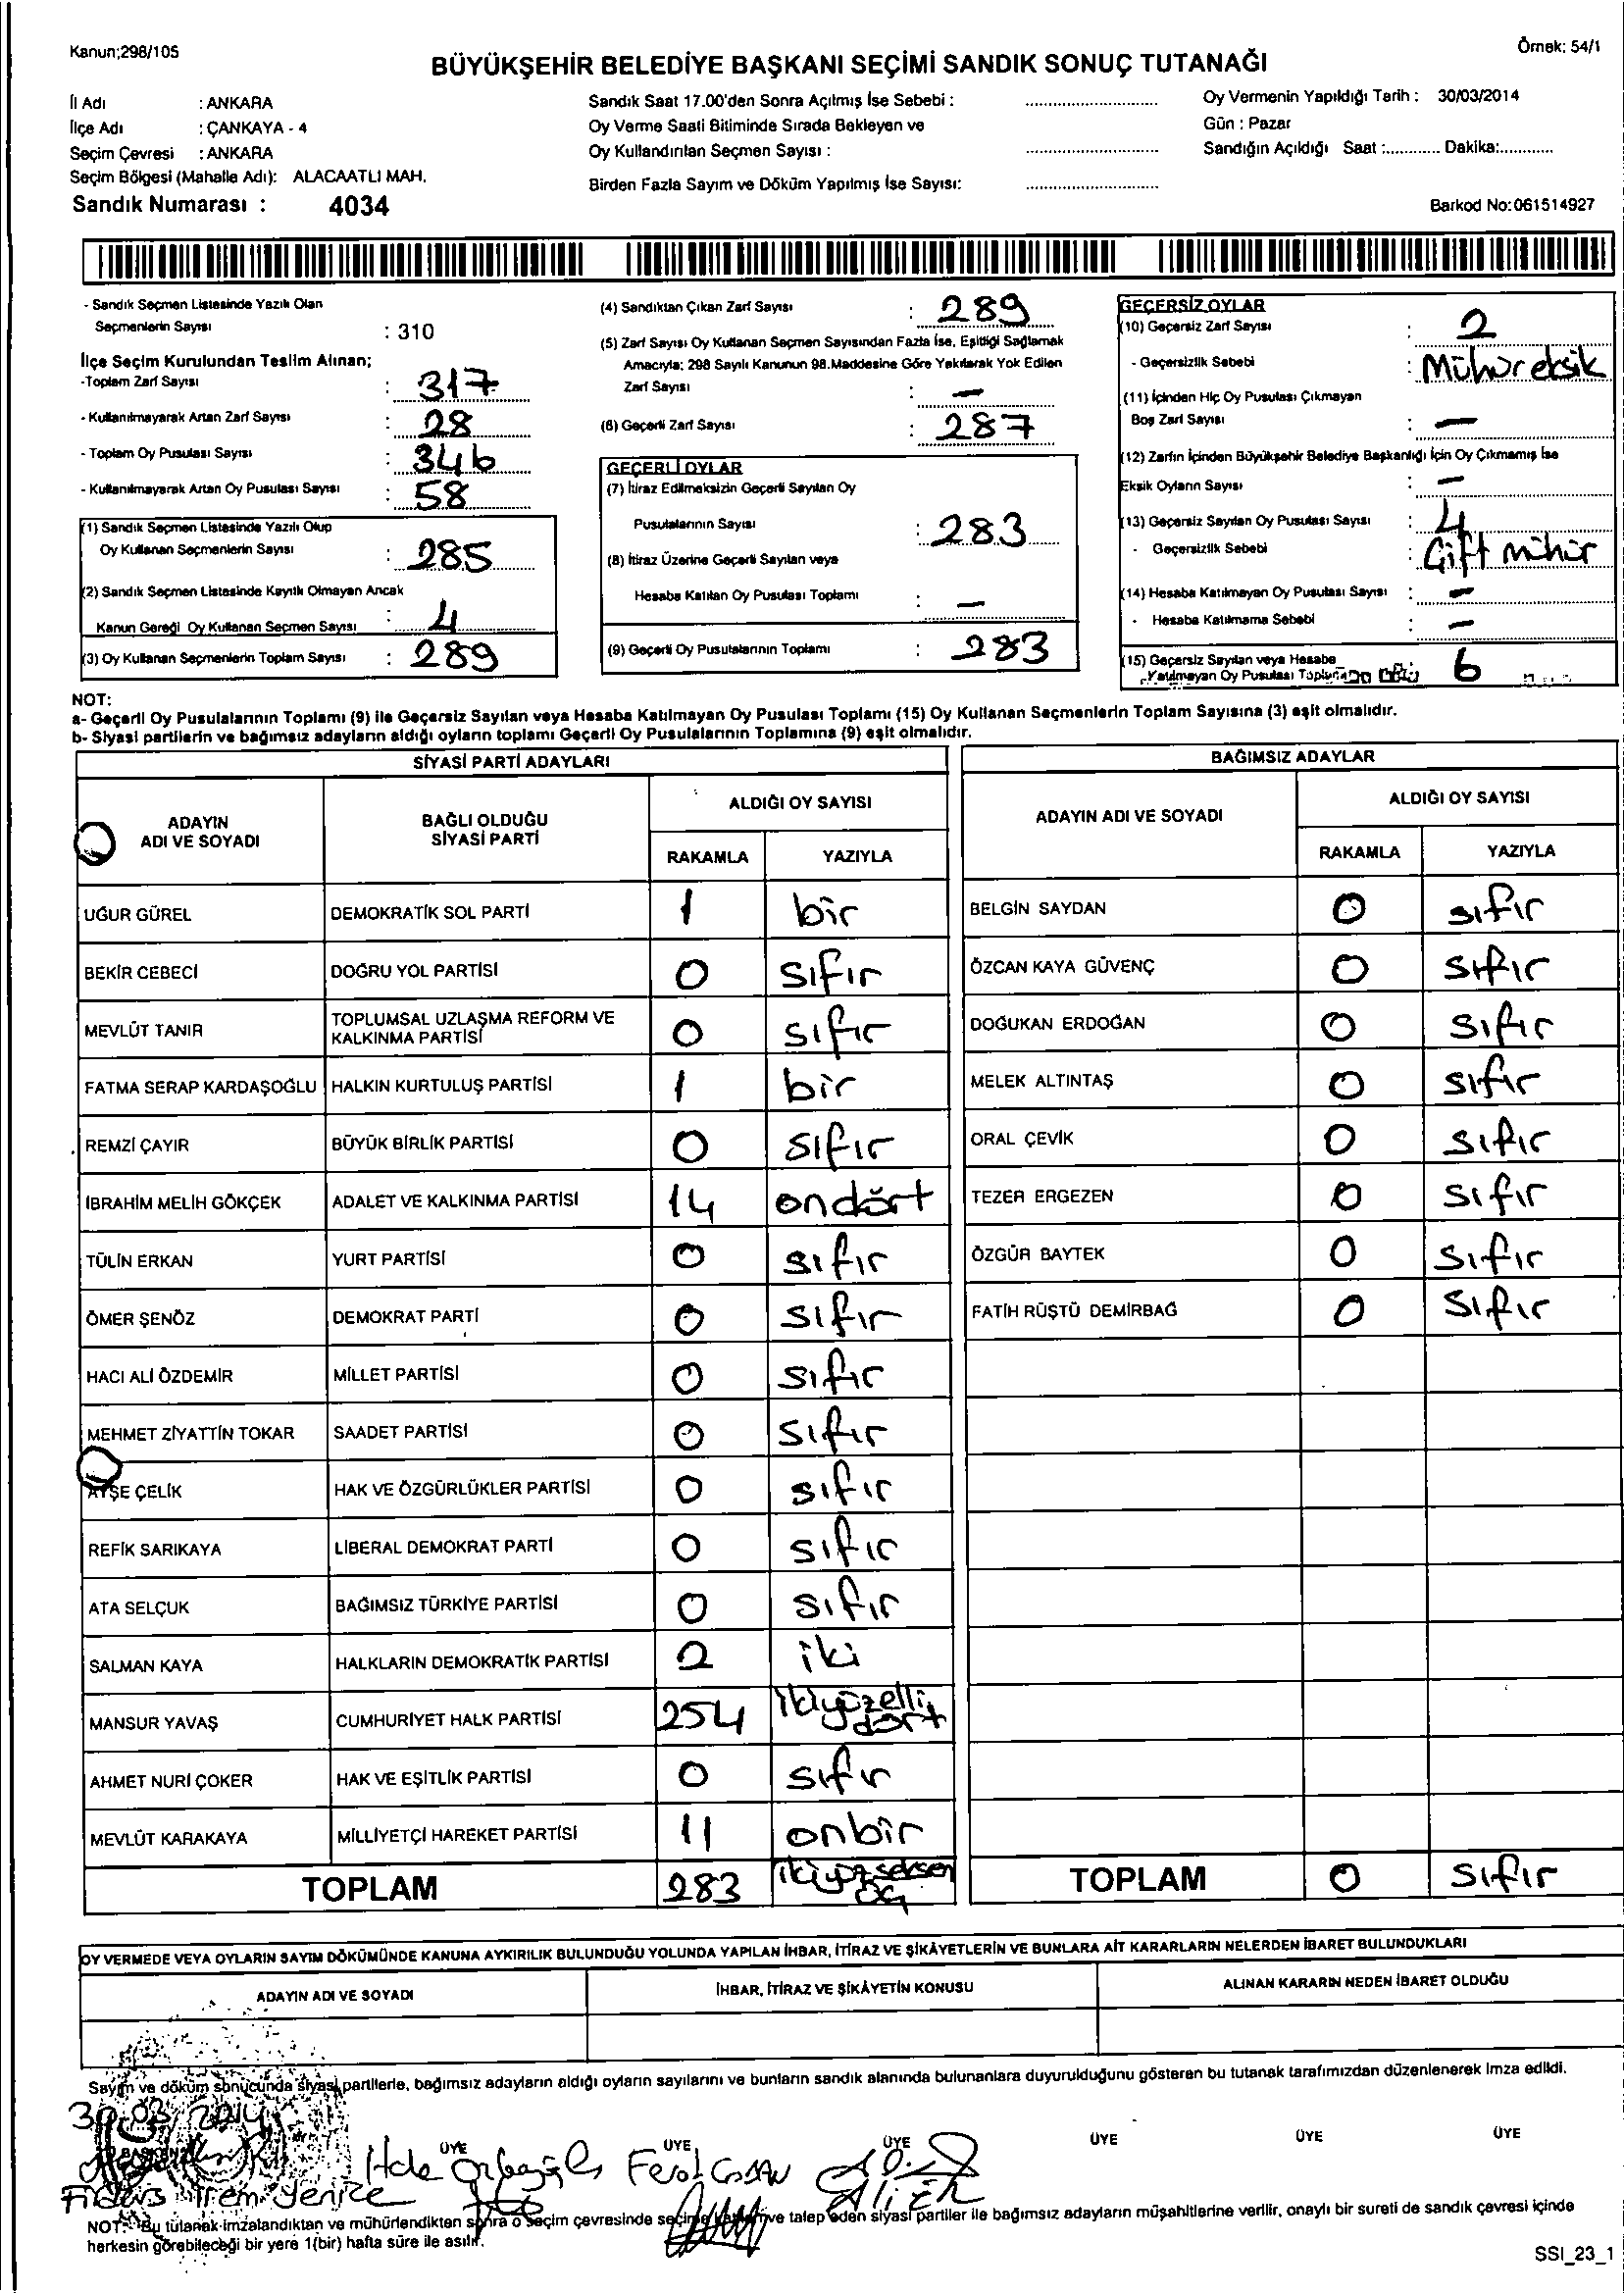 Kanun;298/105
Örnek: 54/1
BÜYÜKŞEHİR BELEDİYE BAŞKANI SEÇİMİ SANDIK SONUÇ TUTANAĞI
İl Adı : ANKARA
İlçe Adı : ÇANKAYA - 4
Seçim Çevresi : ANKARA
Seçim Bölgesi (Mahalle Adı): ALACAATLI MAH.
Sandık Numarası : 4034
Sandık Saat 17.00'den Sonra Açılmış İse Sebebi :
Oy Verme Saati Bitiminde Sırada Bekleyen ve
Oy Kullandırılan Seçmen Sayısı :
Birden Fazla Sayım ve Döküm Yapılmış İse Sayısı:
Oy Vermenin Yapıldığı Tarih : 30/03/2014
Gün : Pazar
Sandığın Açıldığı Saat :............ Dakika:............
Barkod No:061514927
- Sandık Seçmen Listesinde Yazılı Olan
Seçmenlerin Sayısı : 310
İlçe Seçim Kurulundan Teslim Alınan;
-Toplam Zarf Sayısı : 317
- Kullanılmayarak Artan Zarf Sayısı : 28
- Toplam Oy Pusulası Sayısı : 346
- Kullanılmayarak Artan Oy Pusulası Sayısı : 58
(1) Sandık Seçmen Listesinde Yazılı Olup
Oy Kullanan Seçmenlerin Sayısı : 285
(2) Sandık Seçmen Listesinde Kayıtlı Olmayan Ancak
Kanun Gereği Oy Kullanan Seçmen Sayısı : 4
(3) Oy Kullanan Seçmenlerin Toplam Sayısı : 289
(4) Sandıktan Çıkan Zarf Sayısı : 289
(5) Zarf Sayısı Oy Kullanan Seçmen Sayısından Fazla İse, Eşitliği Sağlamak
Amacıyla; 298 Sayılı Kanunun 98.Maddesine Göre Yakılarak Yok Edilen
Zarf Sayısı : —
(6) Geçerli Zarf Sayısı : 287
GEÇERLİ OYLAR
(7) İtiraz Edilmeksizin Geçerli Sayılan Oy
Pusulalarının Sayısı : 283
(8) İtiraz Üzerine Geçerli Sayılan veya
Hesaba Katılan Oy Pusulası Toplamı : —
(9) Geçerli Oy Pusulalarının Toplamı : 283
GEÇERSİZ OYLAR
(10) Geçersiz Zarf Sayısı : 2
- Geçersizlik Sebebi : Mühür eksik
(11) İçinden Hiç Oy Pusulası Çıkmayan
Boş Zarf Sayısı : —
(12) Zarfın İçinden Büyükşehir Belediye Başkanlığı İçin Oy Çıkmamış İse
Eksik Oyların Sayısı : —
(13) Geçersiz Sayılan Oy Pusulası Sayısı : 4
- Geçersizlik Sebebi : Çift mühür
(14) Hesaba Katılmayan Oy Pusulası Sayısı : —
- Hesaba Katılmama Sebebi : —
(15) Geçersiz Sayılan veya Hesaba
Katılmayan Oy Pusulası Toplamı 6
NOT:
a- Geçerli Oy Pusulalarının Toplamı (9) ile Geçersiz Sayılan veya Hesaba Katılmayan Oy Pusulası Toplamı (15) Oy Kullanan Seçmenlerin Toplam Sayısına (3) eşit olmalıdır.
b- Siyasi partilerin ve bağımsız adayların aldığı oyların toplamı Geçerli Oy Pusulalarının Toplamına (9) eşit olmalıdır.
SİYASİ PARTİ ADAYLARI
ADAYIN ADI VE SOYADI
BAĞLI OLDUĞU SİYASİ PARTİ
ALDIĞI OY SAYISI
RAKAMLA YAZIYLA
UĞUR GÜREL DEMOKRATİK SOL PARTİ 1 bir
BEKİR CEBECİ DOĞRU YOL PARTİSİ 0 sıfır
MEVLÜT TANIR TOPLUMSAL UZLAŞMA REFORM VE KALKINMA PARTİSİ 0 sıfır
FATMA SERAP KARDAŞOĞLU HALKIN KURTULUŞ PARTİSİ 1 bir
REMZİ ÇAYIR BÜYÜK BİRLİK PARTİSİ 0 sıfır
İBRAHİM MELİH GÖKÇEK ADALET VE KALKINMA PARTİSİ 14 ondört
TÜLİN ERKAN YURT PARTİSİ 0 sıfır
ÖMER ŞENÖZ DEMOKRAT PARTİ 0 sıfır
HACI ALİ ÖZDEMİR MİLLET PARTİSİ 0 sıfır
MEHMET ZİYATTİN TOKAR SAADET PARTİSİ 0 sıfır
AYŞE ÇELİK HAK VE ÖZGÜRLÜKLER PARTİSİ 0 sıfır
REFİK SARIKAYA LİBERAL DEMOKRAT PARTİ 0 sıfır
ATA SELÇUK BAĞIMSIZ TÜRKİYE PARTİSİ 0 sıfır
SALMAN KAYA HALKLARIN DEMOKRATİK PARTİSİ 2 iki
MANSUR YAVAŞ CUMHURİYET HALK PARTİSİ 254 ikiyüzelli dört
AHMET NURİ ÇOKER HAK VE EŞİTLİK PARTİSİ 0 sıfır
MEVLÜT KARAKAYA MİLLİYETÇİ HAREKET PARTİSİ 11 onbir
TOPLAM 283 ikiyüzseksen üç
BAĞIMSIZ ADAYLAR
ADAYIN ADI VE SOYADI
ALDIĞI OY SAYISI
RAKAMLA YAZIYLA
BELGİN SAYDAN 0 sıfır
ÖZCAN KAYA GÜVENÇ 0 sıfır
DOĞUKAN ERDOĞAN 0 sıfır
MELEK ALTINTAŞ 0 sıfır
ORAL ÇEVİK 0 sıfır
TEZER ERGEZEN 0 sıfır
ÖZGÜR BAYTEK 0 sıfır
FATİH RÜŞTÜ DEMİRBAĞ 0 sıfır
TOPLAM 0 sıfır
OY VERMEDE VEYA OYLARIN SAYIM DÖKÜMÜNDE KANUNA AYKIRILIK BULUNDUĞU YOLUNDA YAPILAN İHBAR, İTİRAZ VE ŞİKÂYETLERİN VE BUNLARA AİT KARARLARIN NELERDEN İBARET BULUNDUKLARI
ADAYIN ADI VE SOYADI
İHBAR, İTİRAZ VE ŞİKÂYETİN KONUSU
ALINAN KARARIN NEDEN İBARET OLDUĞU
Sayım ve döküm sonucunda siyasi partilerle, bağımsız adayların aldığı oyların sayılarını ve bunların sandık alanında bulunanlara duyurulduğunu gösteren bu tutanak tarafımızdan düzenlenerek imza edildi.
30.03.2014
BAŞKAN ÜYE ÜYE ÜYE ÜYE ÜYE ÜYE
İrem Yenice
NOT: Bu tutanak imzalandıktan ve mühürlendikten sonra o seçim çevresinde seçime katılan ve talep eden siyasi partiler ile bağımsız adayların müşahitlerine verilir, onaylı bir sureti de sandık çevresi içinde
herkesin görebileceği bir yere 1(bir) hafta süre ile asılır.
SSI_23_1